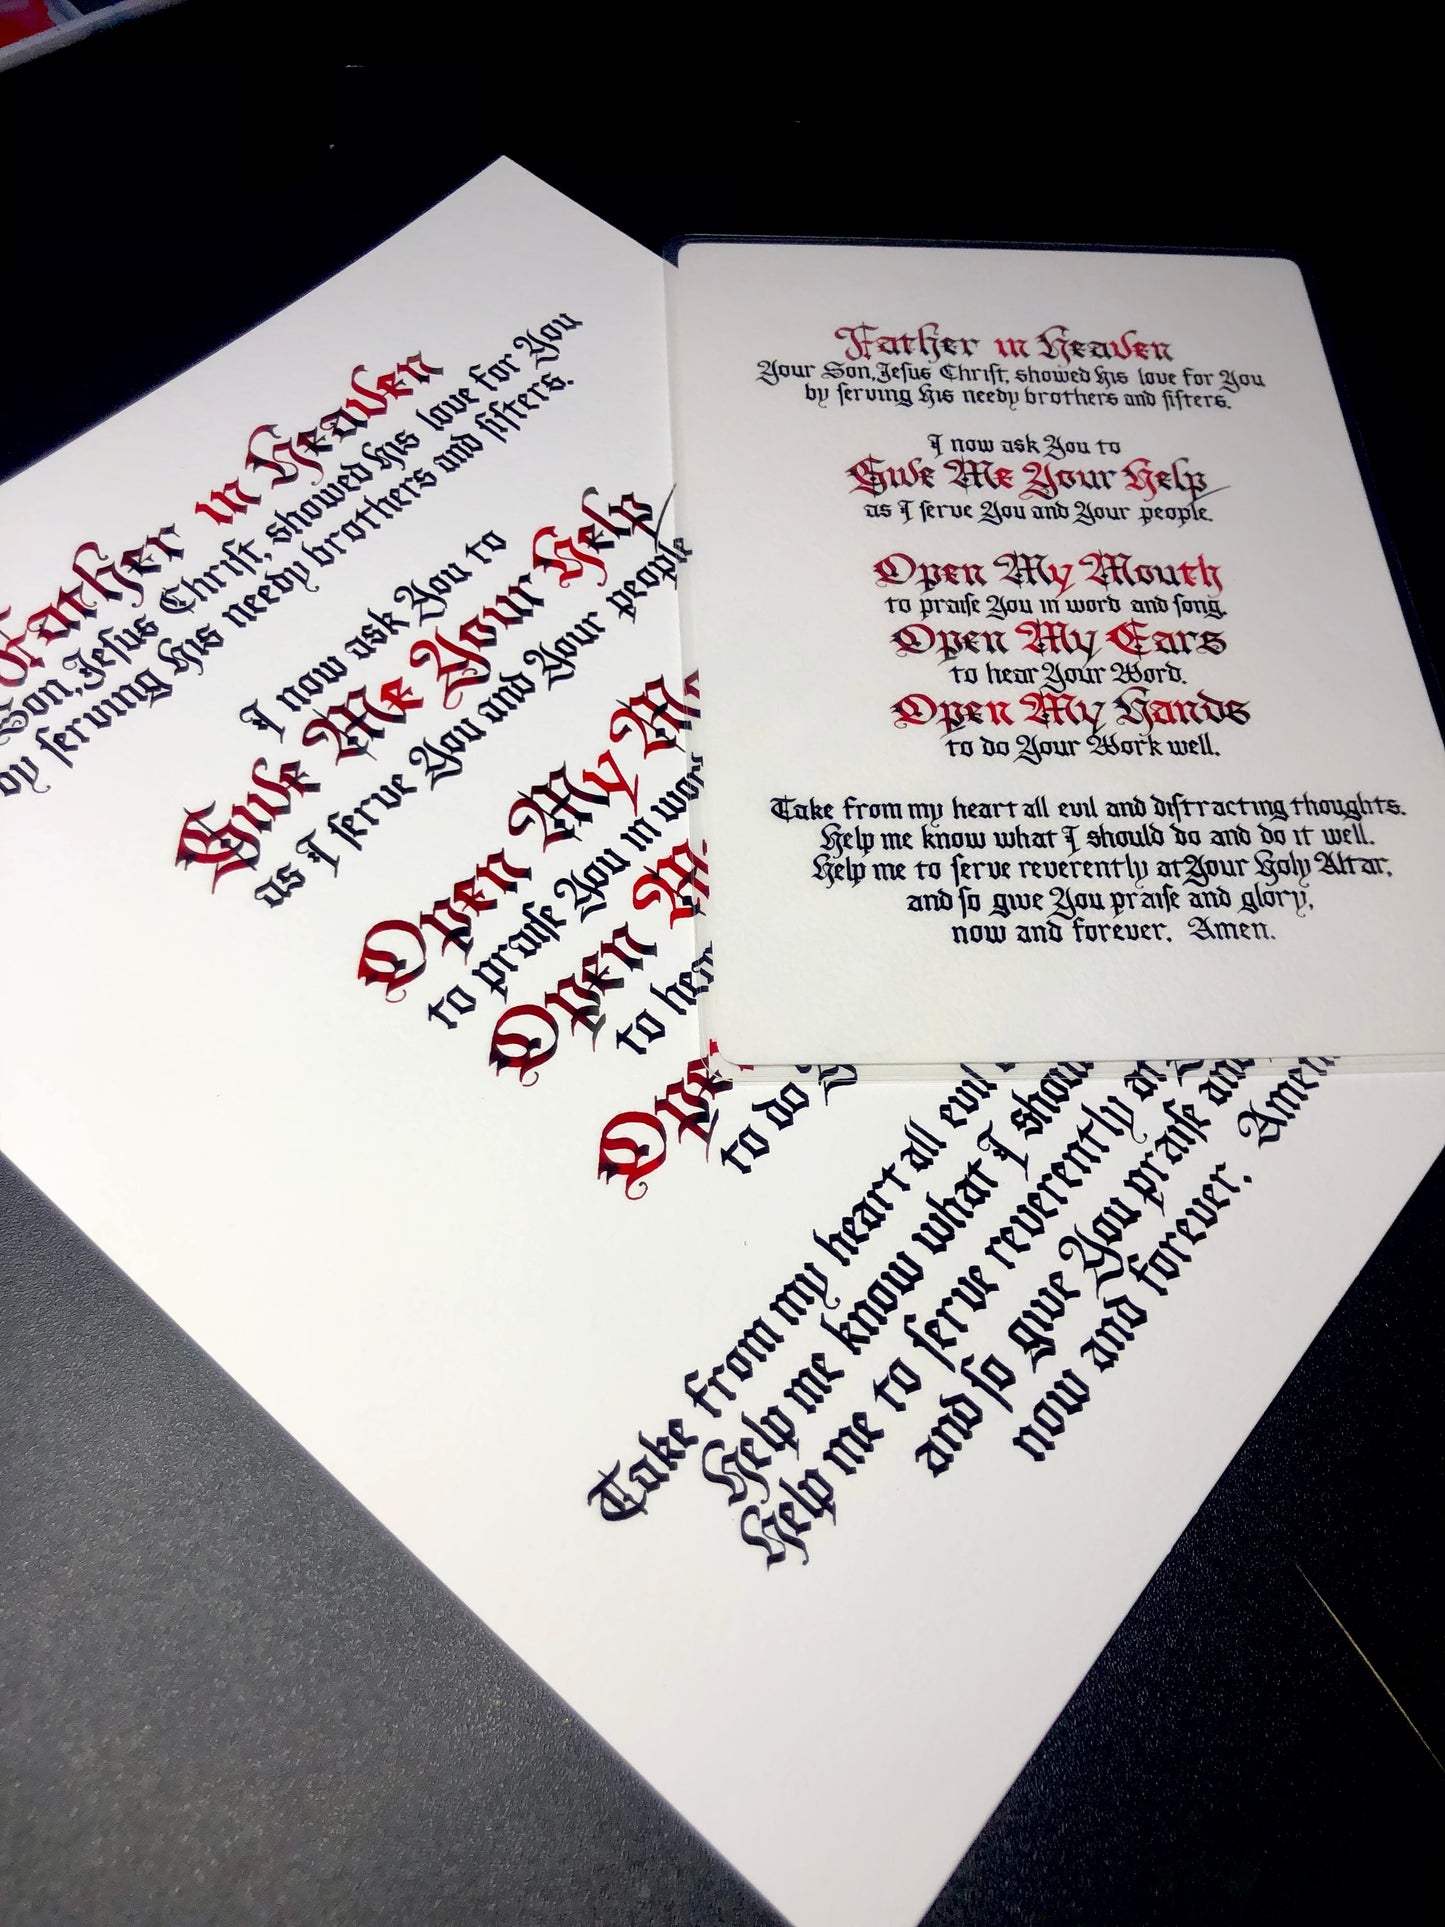 Father in Heaven
Son, Jeſus Chriſt, showed his love for You
by ſerving His needy brothers and ſiſters.
I now ask You to
Give Me Your Help
as I ſerve You and Your people
Open My
to praiſe You in
Open
to
to do
Take from my heart all evil
Help me know what I
Help me to ſerve reverently
and ſo give You praiſe and
now and forever. Amen
Father in Heaven
Your Son, Jeſus Chriſt, showed his love for You
by ſerving His needy brothers and ſiſters.
I now ask You to
Give Me Your Help
as I ſerve You and Your people.
Open My Mouth
to praiſe You in word and ſong.
Open My Ears
to hear Your Word.
Open My Hands
to do Your Work well.
Take from my heart all evil and diſtracting thoughts.
Help me know what I should do and do it well.
Help me to ſerve reverently at Your Holy Altar,
and ſo give You praiſe and glory,
now and forever. Amen.